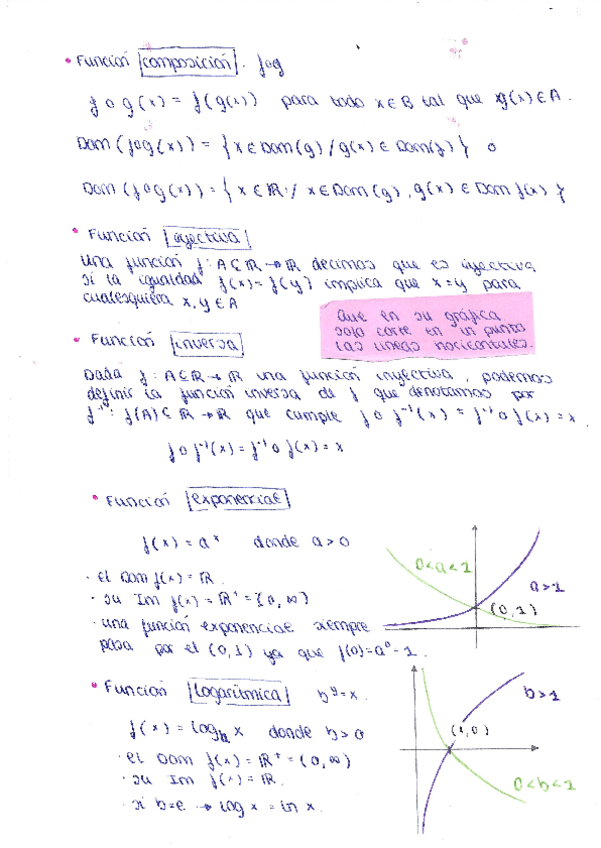 • Función composición. fog
f o g(x) = f(g(x)) para todo x ∈ B tal que g(x) ∈ A.
Dom (fog(x)) = { x ∈ Dom(g) / g(x) ∈ Dom(f) } ó
Dom (fog(x)) = { x ∈ ℝ / x ∈ Dom(g), g(x) ∈ Dom f(x) }
• Función inyectiva
Una función f: A ⊆ ℝ → ℝ decimos que es inyectiva
si la igualdad f(x) = f(y) implica que x=y para
cualesquiera x, y ∈ A
Que en su gráfica
solo corte en un punto
las líneas horizontales.
• Función inversa
Dada f: A ⊆ ℝ → ℝ una función inyectiva, podemos
definir la función inversa de f que denotamos por
f⁻¹: f(A) ⊆ ℝ → ℝ que cumple f o f⁻¹(x) = f⁻¹ o f(x) = x
f o f⁻¹(x) = f⁻¹ o f(x) = x
• Función exponencial
f(x) = aˣ donde a > 0
· el Dom f(x) = ℝ.
· su Im f(x) = ℝ⁺ = (0, ∞)
· una función exponencial siempre
pasa por el (0,1) ya que f(0) = a⁰ = 1.
0<a<1
a>1
(0,1)
• Función logarítmica bʸ = x.
f(x) = log_b x donde b > 0
· el Dom f(x) = ℝ⁺ = (0, ∞)
· su Im f(x) = ℝ.
· si b=e → log x = ln x.
b>1
(1,0)
0<b<1